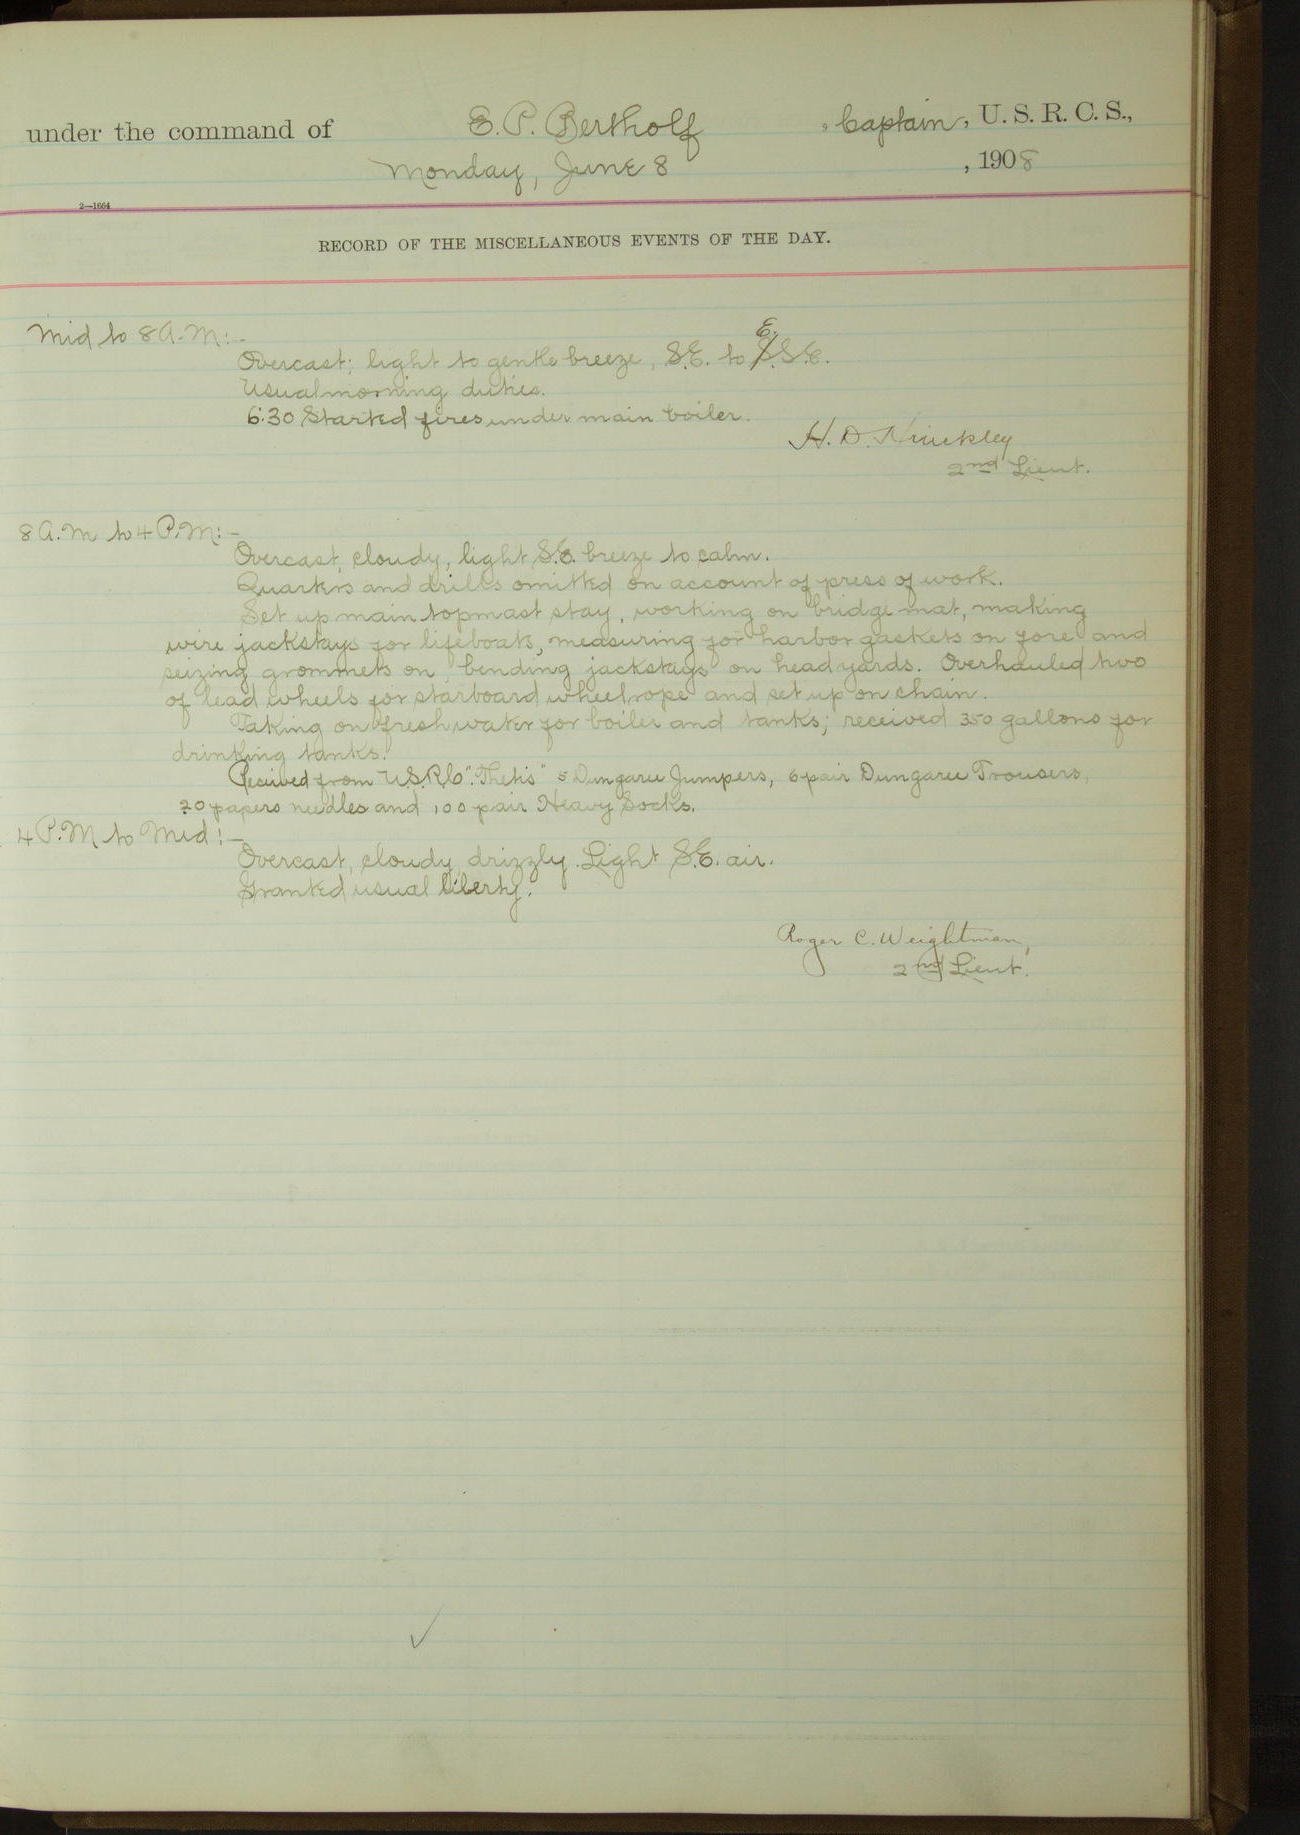 under the command of E. P. Bertholf, Captain, U. S. R. C. S.,
Monday, June 8, 1908
2—1664
RECORD OF THE MISCELLANEOUS EVENTS OF THE DAY.
Mid to 8 A.M:-
E.
Overcast; light to gentle breeze, S.E. to S.S.E.
Usual morning duties.
6:30 Started fires under main boiler.
H. D. Hinckley
2nd Lieut.
8 A.M to 4 P.M:-
Overcast, cloudy, light S.E. breeze to calm.
Quarters and drills omitted on account of press of work.
Set up main topmast stay, working on bridge mat, making
wire jackstays for lifeboats, measuring for harbor gaskets on fore and
seizing grommets on, bending jackstays on head yards. Overhauled two
of lead wheels for starboard wheelrope and set up on chain.
Taking on fresh water for boiler and tanks; received 350 gallons for
drinking tanks.
Received from U.S.R.C. "Thetis" 5 Dungaree Jumpers, 6 pair Dungaree Trousers,
20 papers needles and 100 pair Heavy Socks.
4 P.M to Mid:-
Overcast, cloudy, drizzly. Light S.E. air.
Granted usual liberty.
Roger C. Weightman,
2nd Lieut.